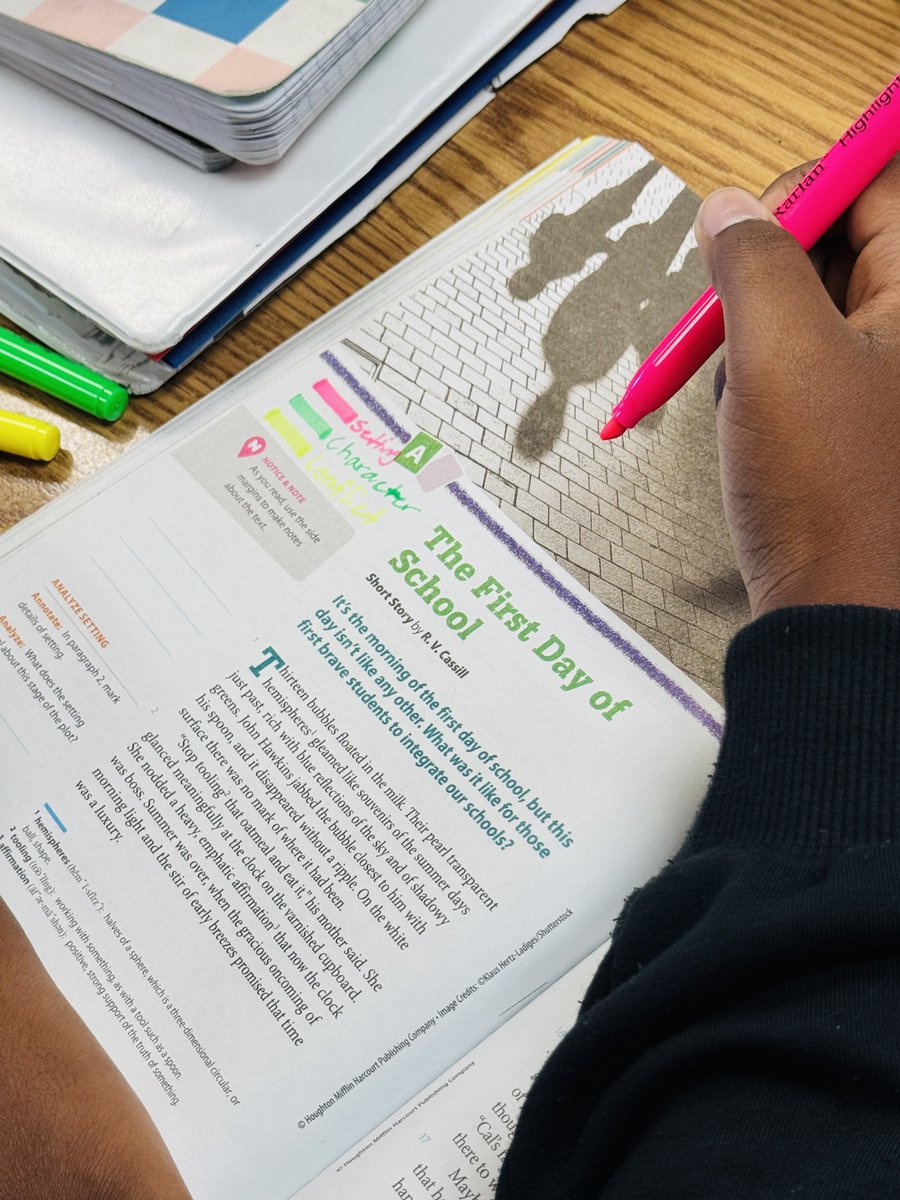 Karlan Highlight
Setting
Character
Conflict
A
N NOTICE & NOTE
As you read, use the side
margins to make notes
about the text.
The First Day of
School
Short Story by R. V. Cassill
It's the morning of the first day of school, but this
day isn't like any other. What was it like for those
first brave students to integrate our schools?
1
Thirteen bubbles floated in the milk. Their pearl transparent
hemispheres1 gleamed like souvenirs of the summer days
just past, rich with blue reflections of the sky and of shadowy
greens. John Hawkins jabbed the bubble closest to him with
his spoon, and it disappeared without a ripple. On the white
surface there was no mark of where it had been.
2
"Stop tooling2 that oatmeal and eat it," his mother said. She
glanced meaningfully at the clock on the varnished cupboard.
She nodded a heavy, emphatic affirmation3 that now the clock
was boss. Summer was over, when the gracious oncoming of
morning light and the stir of early breezes promised that time
was a luxury.
ANALYZE SETTING
Annotate: In paragraph 2, mark
details of setting.
Analyze: What does the setting
about this stage of the plot?
1 hemispheres (hĕm´ĭ-sfîrz´): halves of a sphere, which is a three-dimensional, circular, or
ball, shape.
2 tooling (to͞o´lĭng): working with something, as with a tool such as a spoon.
affirmation (ăf´ər-mā´shən): positive, strong support of the truth of something.
© Houghton Mifflin Harcourt Publishing Company • Image Credits: ©Klaus Hertz-Ladiges/Shutterstock
© Houghton Mifflin Harcourt Publishing Company
17
"Cal's
there to
that